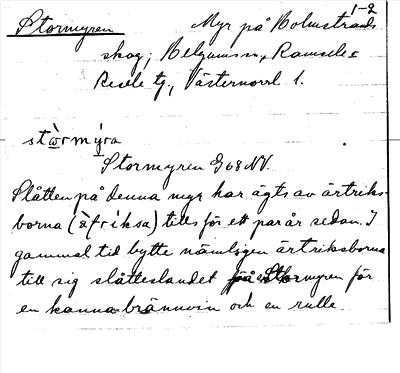 1-2
Stormyren Myr på Bolmstrands
skog; Helgums sn, Ramsele o
Resele tg., Västernorrl l.
stòrmýra
Stormyren G68 NV.
Slåtten på denna myr har ägts av ärtriks-
borna (àfriksa) tills för ett par år sedan. I
gammal tid bytte nämligen ärtriksborna
till sig slåtteslandet på Stormyren för
en kanna brännvin och en rulle